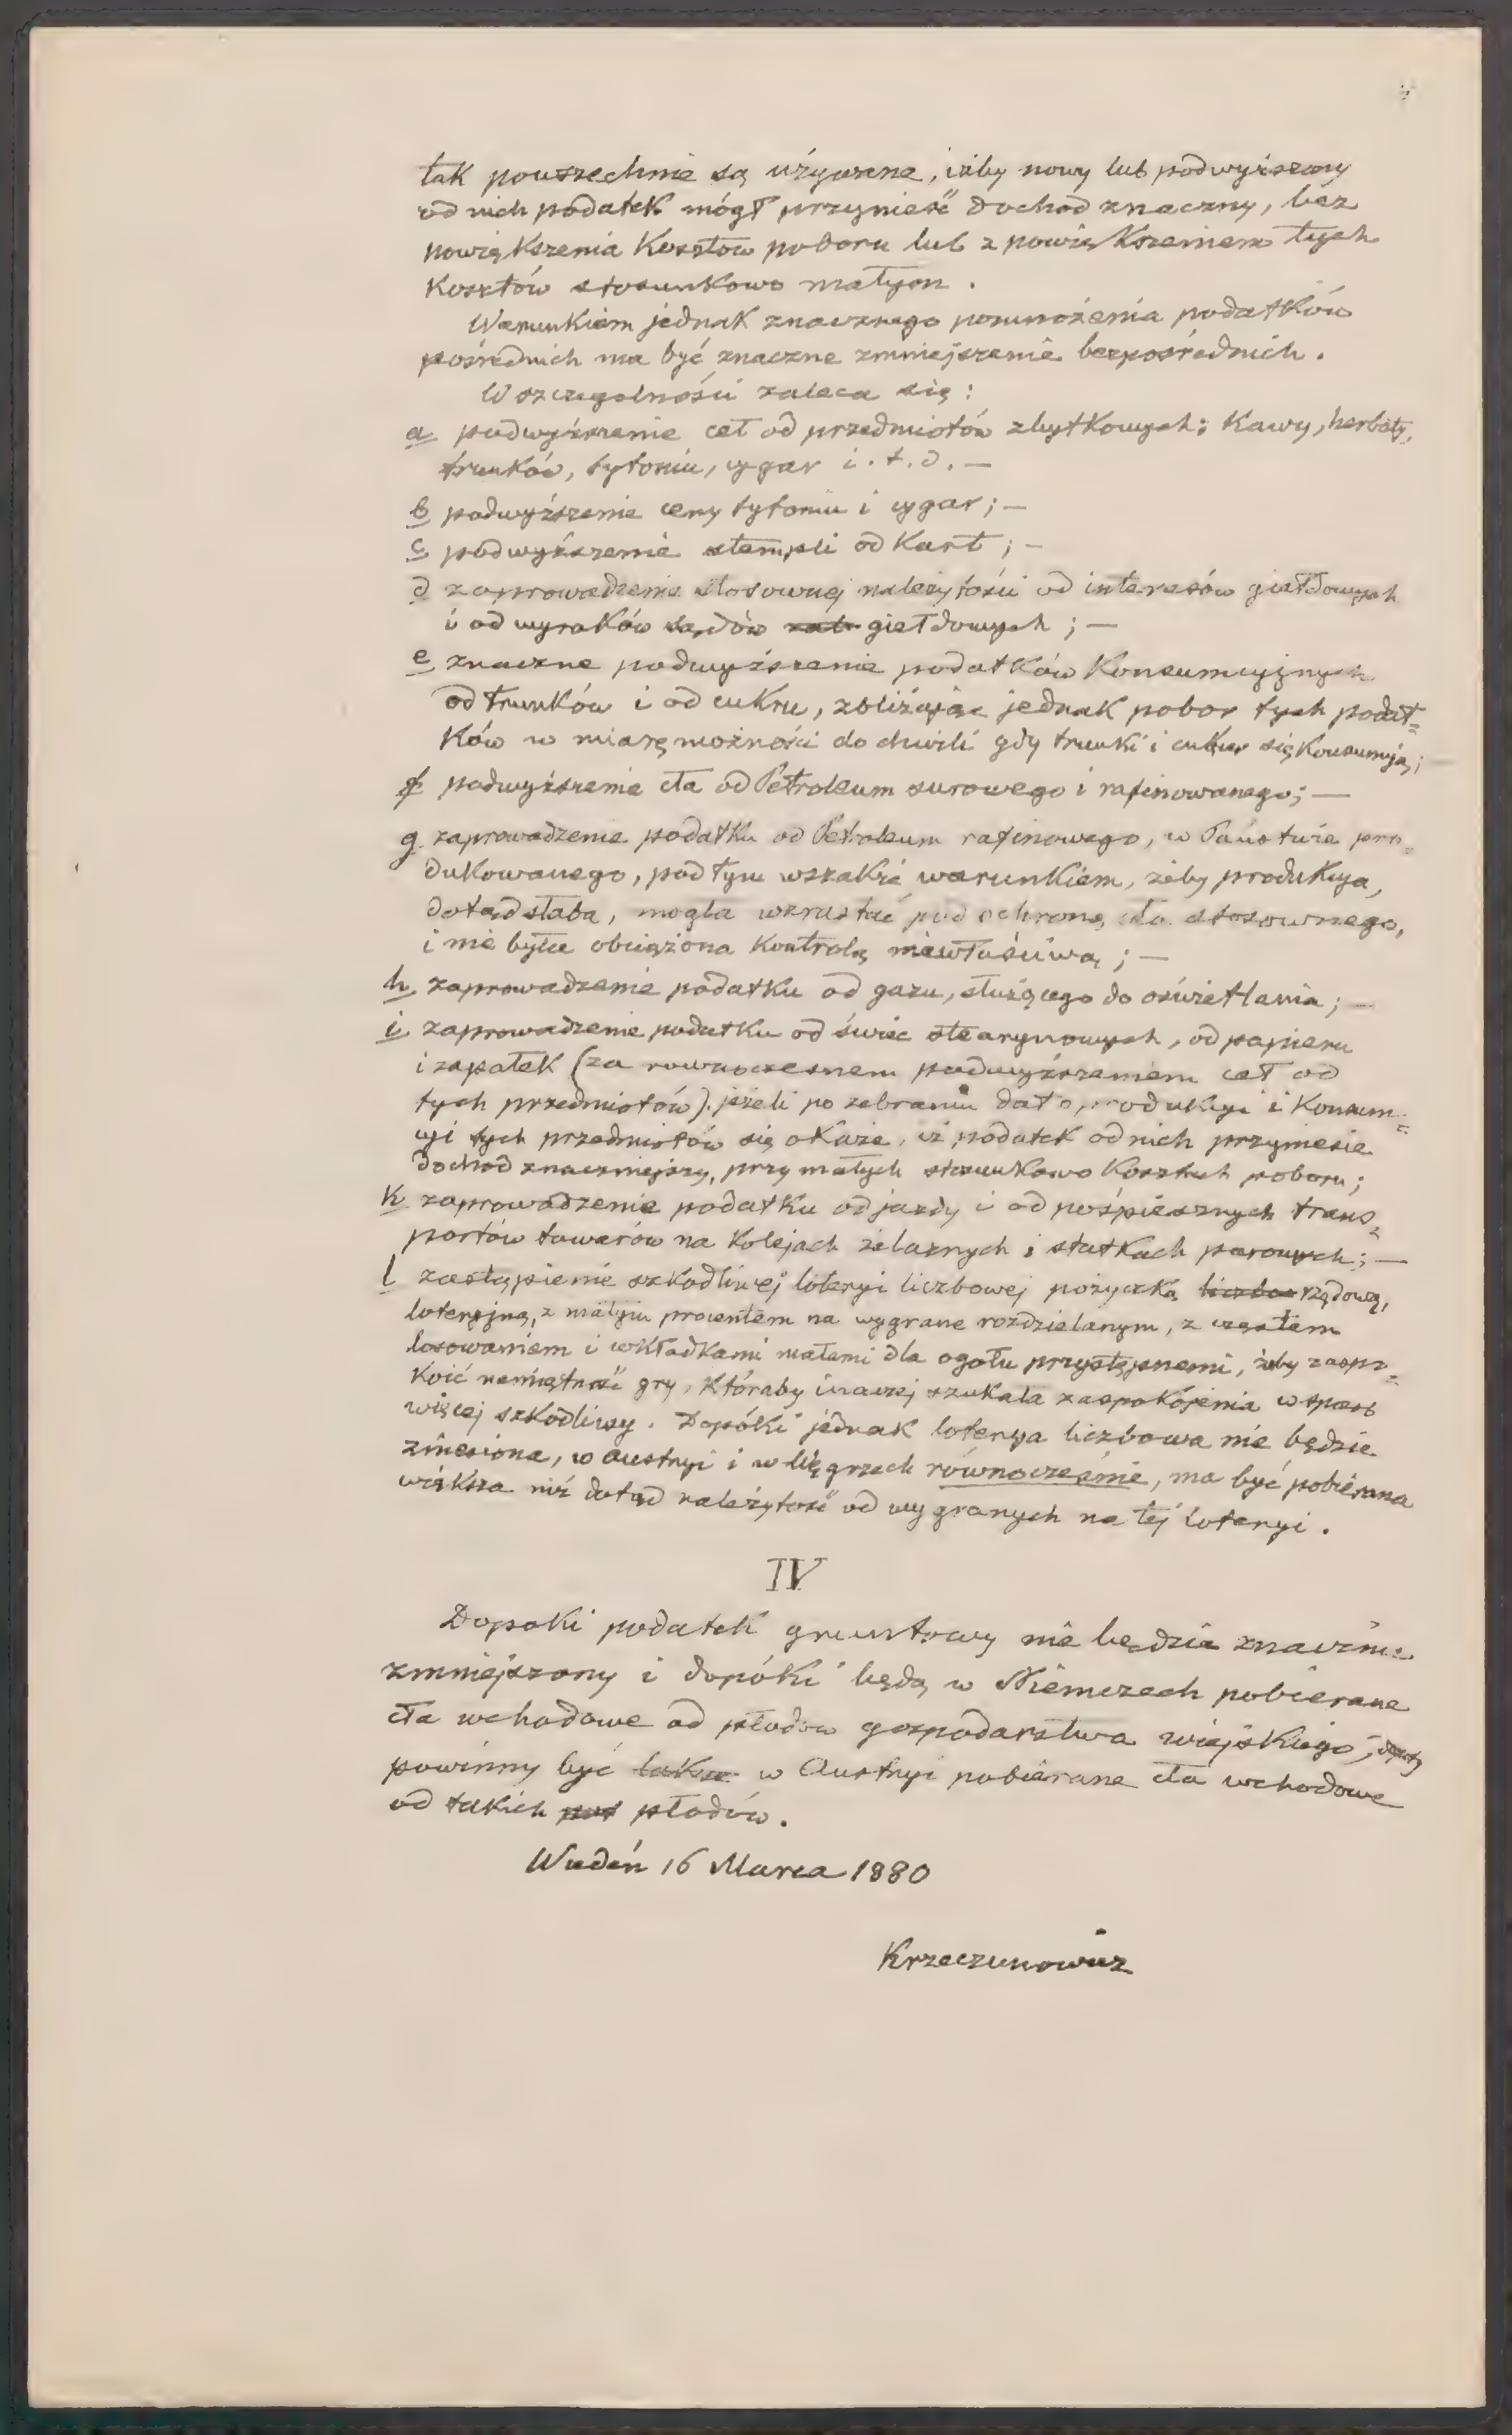 tak powszechnie są używane, iżby nowy lub podwyższony
od nich podatek mógł przynieść dochod znaczny, bez
powiększenia Kosztów poboru lub z powiększeniem tych
Kosztów stosunkowo małym.
Warunkiem jednak znacznego pomnożenia podatków
pośrednich ma być znaczne zmniejszenie bezpośrednich.
W szczególności zaleca się:
a podwyższenie ceł od przedmiotów zbytkowych; Kawy, herbaty,
trunków, tytoniu, cygar i.t.d. —
b podwyższenie ceny tytoniu i cygar; —
c podwyższenie stempli od Kart; —
d zaprowadzenie stosownej należytości od interesów giełdowych
i od wyroków sądów giełdowych; —
e znaczne podwyższenie podatków Konsumcyjnych
od trunków i od cukru, zbliżając jednak pobor tych podat=
Ków w miarę możności do chwili gdy trunki i cukier się Konsumują;
f podwyższenie cła od Petroleum surowego i rafinowanego; —
g zaprowadzenie podatku od Petroleum rafinowego, w Państwie pro=
dukowanego, pod tym wszakże warunkiem, żeby produkcya,
dotąd słaba, mogła wzrastać pod ochroną cła stosownego,
i nie była obciążona Kontrolą niewłaściwą; —
h zaprowadzenie podatku od gazu, służącego do oświetlania; —
i zaprowadzenie podatku od świec stearynowych, od papieru
i zapałek (za rownoczesnem podwyższeniem ceł od
tych przedmiotów) jeżeli po zebraniu dat o produkcyi i Konsum=
cyi tych przedmiotów się okaże, iż podatek od nich przyniesie
dochod znaczniejszy, przy małych stosunkowo Kosztach poboru;
k zaprowadzenie podatku od jazdy i od pośpiesznych trans=
portów towarów na Kolejach żelaznych i statkach parowych; —
l zastąpienie szkodliwej loteryi liczbowej pożyczką rządową,
loteryjną, z małym procentem na wygrane rozdzielanym, z częstem
losowaniem i wkładkami małemi dla ogołu przystępnemi, żeby zaspo=
Koić namiętność gry, Któraby inaczej szukała zaspokójenia w sposob
więcej szkodliwy. Dopóki jednak loterya liczbowa nie będzie
zniesiona, w Austryi i w Węgrzech równocześnie, ma być pobierana
większa niż dotąd należytość od wygranych na tej loteryi.
IV
Dopoki podatek gruntowy nie będzie znacznie
zmniejszony i dopóki będą w Niemczech pobierane
cła wchodowe od płodów gospodarstwa wiejskiego,
powinny być w Austryi pobierane cła wchodowe
od takich płodów.
Wiedeń 16 Marca 1880
Krzeczunowicz